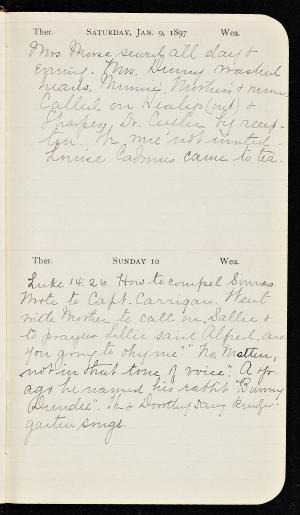 Ther. SATURDAY, JAN. 9, 1897 Wea.
Mrs. Morse sewed all day &
evening. Mrs. Denny washed
heads. Minnie, Mother's & mine
Called on Healys (out) &
Sharpes, Dr. Cuyler by recep-
tion. Th. me not invited.
Louise Cadmus came to tea.
Ther. SUNDAY 10 Wea.
Luke 14:26. How to compel Sinners.
Wrote to Capt. Carrigan. Went
with Mother to call on Sallie &
to prayers. Lillie said Alfred, are
you going to ohyme?" "No, Mattern,
not in that tone of voice". A yr.
ago he named his rabbit "Bunny
Dundie". Th. & Dorothy sang kinder-
garten songs.